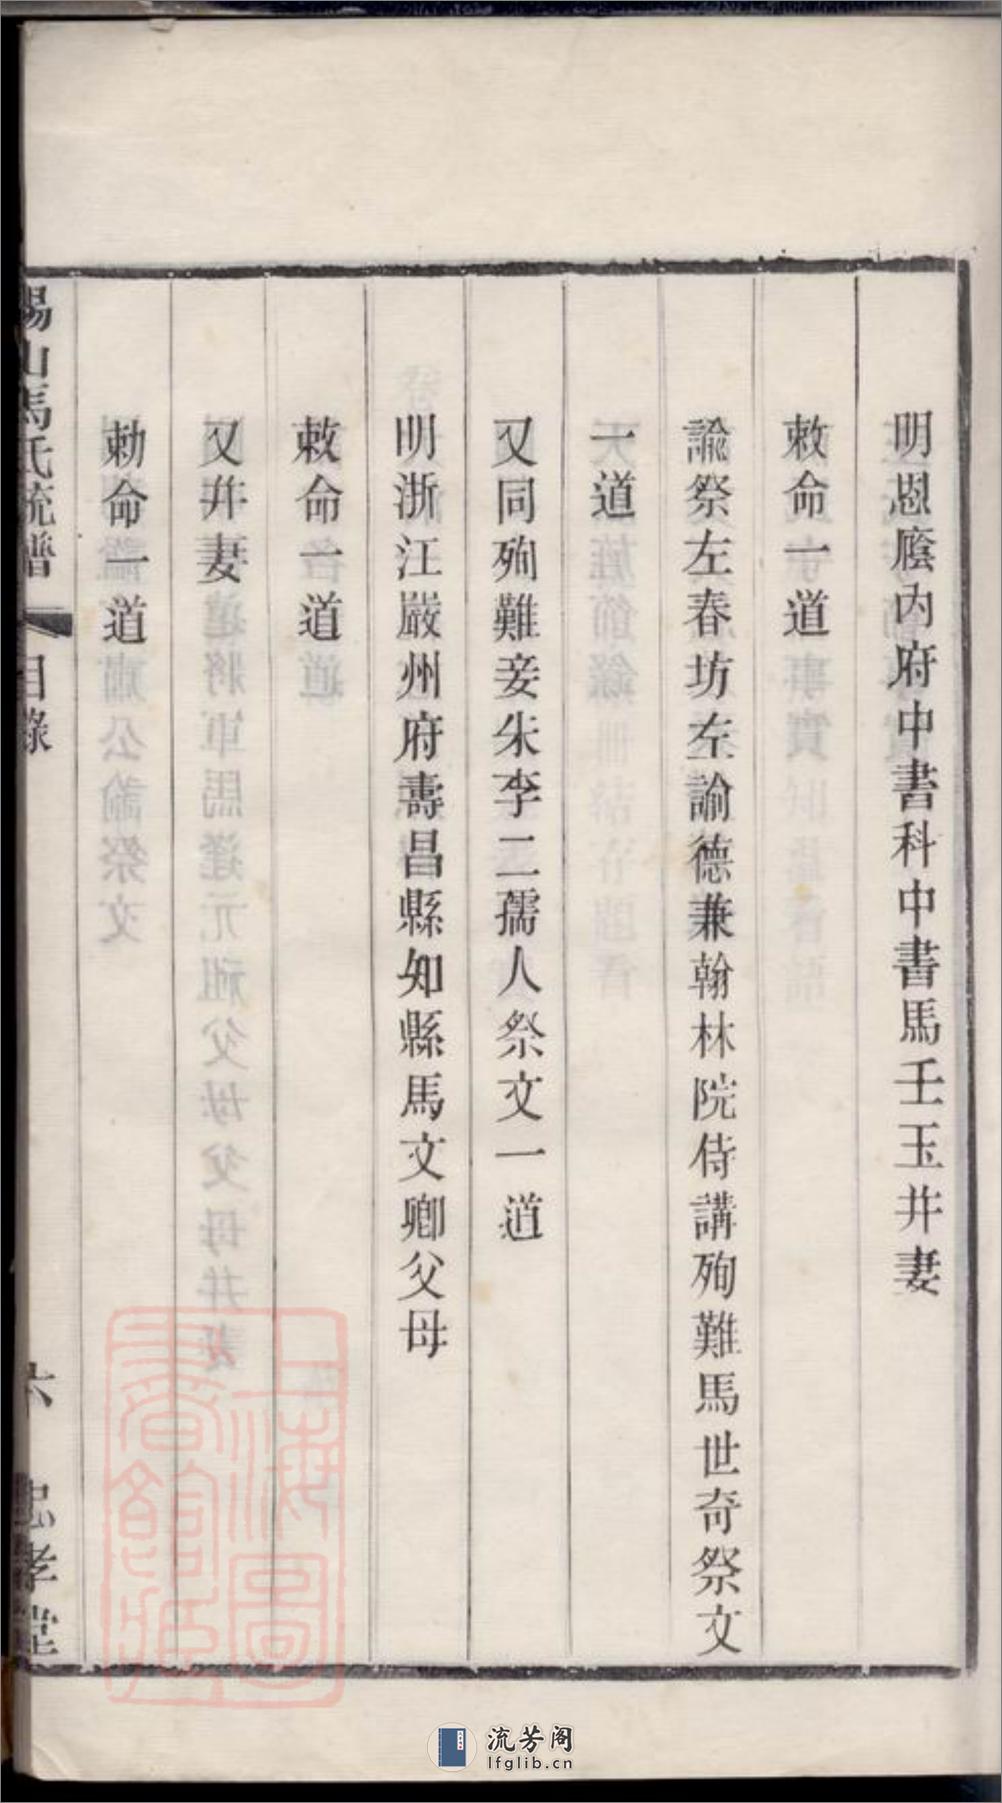 明恩廕內府中書科中書馬壬玉幷妻
敕命一道
諭祭左春坊左諭德兼翰林院侍講殉難馬世奇祭文
一道
又同殉難妾朱李二孺人祭文一道
明浙江嚴州府壽昌縣知縣馬文卿父母
敕命一道
又幷妻
勅命一道
錫山馬氏統譜
目錄
六
忠孝堂
上海圖
書館藏
流芳阁
lfglib.cn